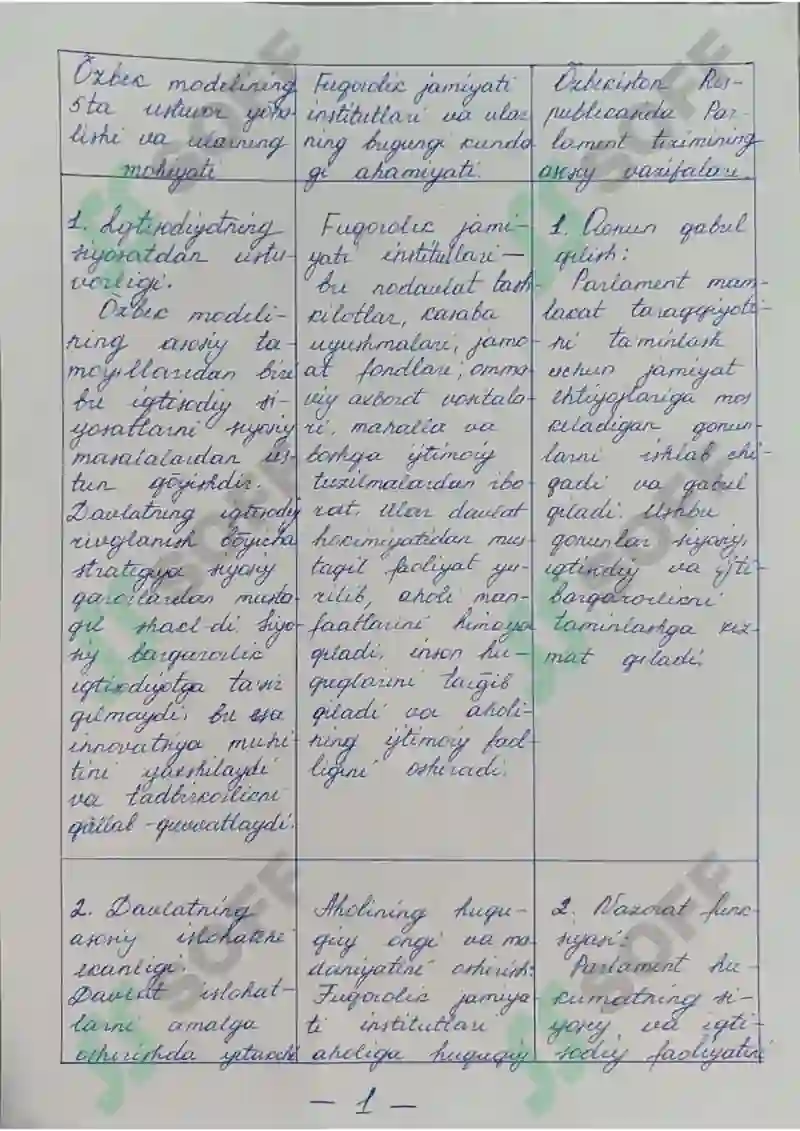 Õzbek modelining
5ta ustuvor yõna-
lishi va ularning
mohiyati
Fuqorolik jamiyati
institutlari va ular
ning bugungi kunda
gi ahamiyati.
Õzbekiston Res-
publikasida Par-
lament tizimining
asosiy vazifalari.
1. Iqtisodiyotning
siyosatdan ustu-
vorligi.
Õzbek modeli-
ning asosiy ta-
moyillaridan biri
bu iqtisodiy si-
yosatlarni siyosiy
masalalardan us-
tun qõyishdir.
Davlatning iqtisodiy
rivojlanish bõyicha
strategiya siyosiy
qarorlardan musta-
qil shakl-di. Siyo-
siy barqarorlik
iqtisodiyotga ta'sir
qilmaydi, bu esa
innovatsiya muhi-
tini yaxshilaydi
va tadbirkorlikni
qõllab-quvvatlaydi.
Fuqorolik jami-
yati institutlari —
bu nodavlat tash-
kilotlar, kasaba
uyushmalari, jamo-
at fondlari, omma-
viy axborot vositala-
ri, mahalla va
boshqa ijtimoiy
tuzilmalardan ibo-
rat. Ular davlat
hokimiyatidan mus-
taqil faoliyat yu-
ritib, aholi man-
faatlarini himoya
qiladi, inson hu-
quqlarini targ'ib
qiladi va aholi-
ning ijtimoiy faol-
ligini oshiradi.
1. Qonun qabul
qilish:
Parlament mam-
lakat taraqqiyoti-
ni ta'minlash
uchun jamiyat
ehtiyojlariga mos
keladigan qonun-
larni ishlab chi-
qadi va qabul
qiladi. Ushbu
qonunlar siyosiy,
iqtisodiy va ijti-
barqarorlikni
taminlashga xiz-
mat qiladi.
2. Davlatning
asosiy islohotchi
ekanligi.
Davlat islohot-
larni amalga
oshirishda yetakchi
Aholining huqu-
qiy ongi va ma-
daniyatini oshirish:
Fuqorolik jamiya-
ti institutlari
aholiga huquqiy
2. Nazorat funk-
siyasi:
Parlament hu-
kumatning si-
yosiy va iqti-
sodiy faoliyatini
— 1 —
SOFF
SOFF
SOFF
SOFF
SOFF
SOFF